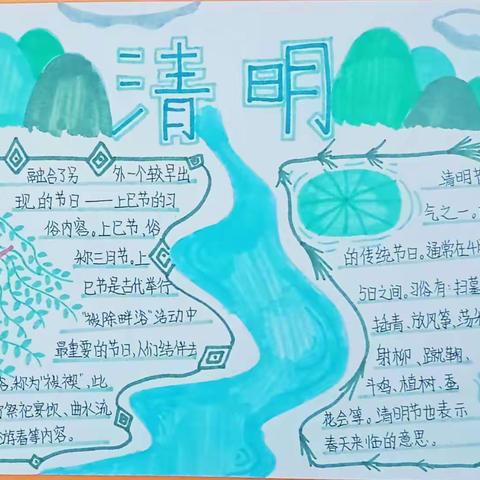 清明
融合了另 外一个较早出
现的节日——上巳节的习
俗内容。上巳节,俗
称三月节。上
巳节是古代举行
"祓除畔浴"活动中
最重要的节日,人们结伴去
称为"祓禊",此
祭祀宴饮、曲水流
游春等内容。
清明节
气之一。
的传统节日。通常在4月
5日之间。习俗有:扫墓
插青、放风筝、荡
射柳、蹴鞠、
斗鸡、植树、蚕
花会等。清明节也表示
春天来临的意思。